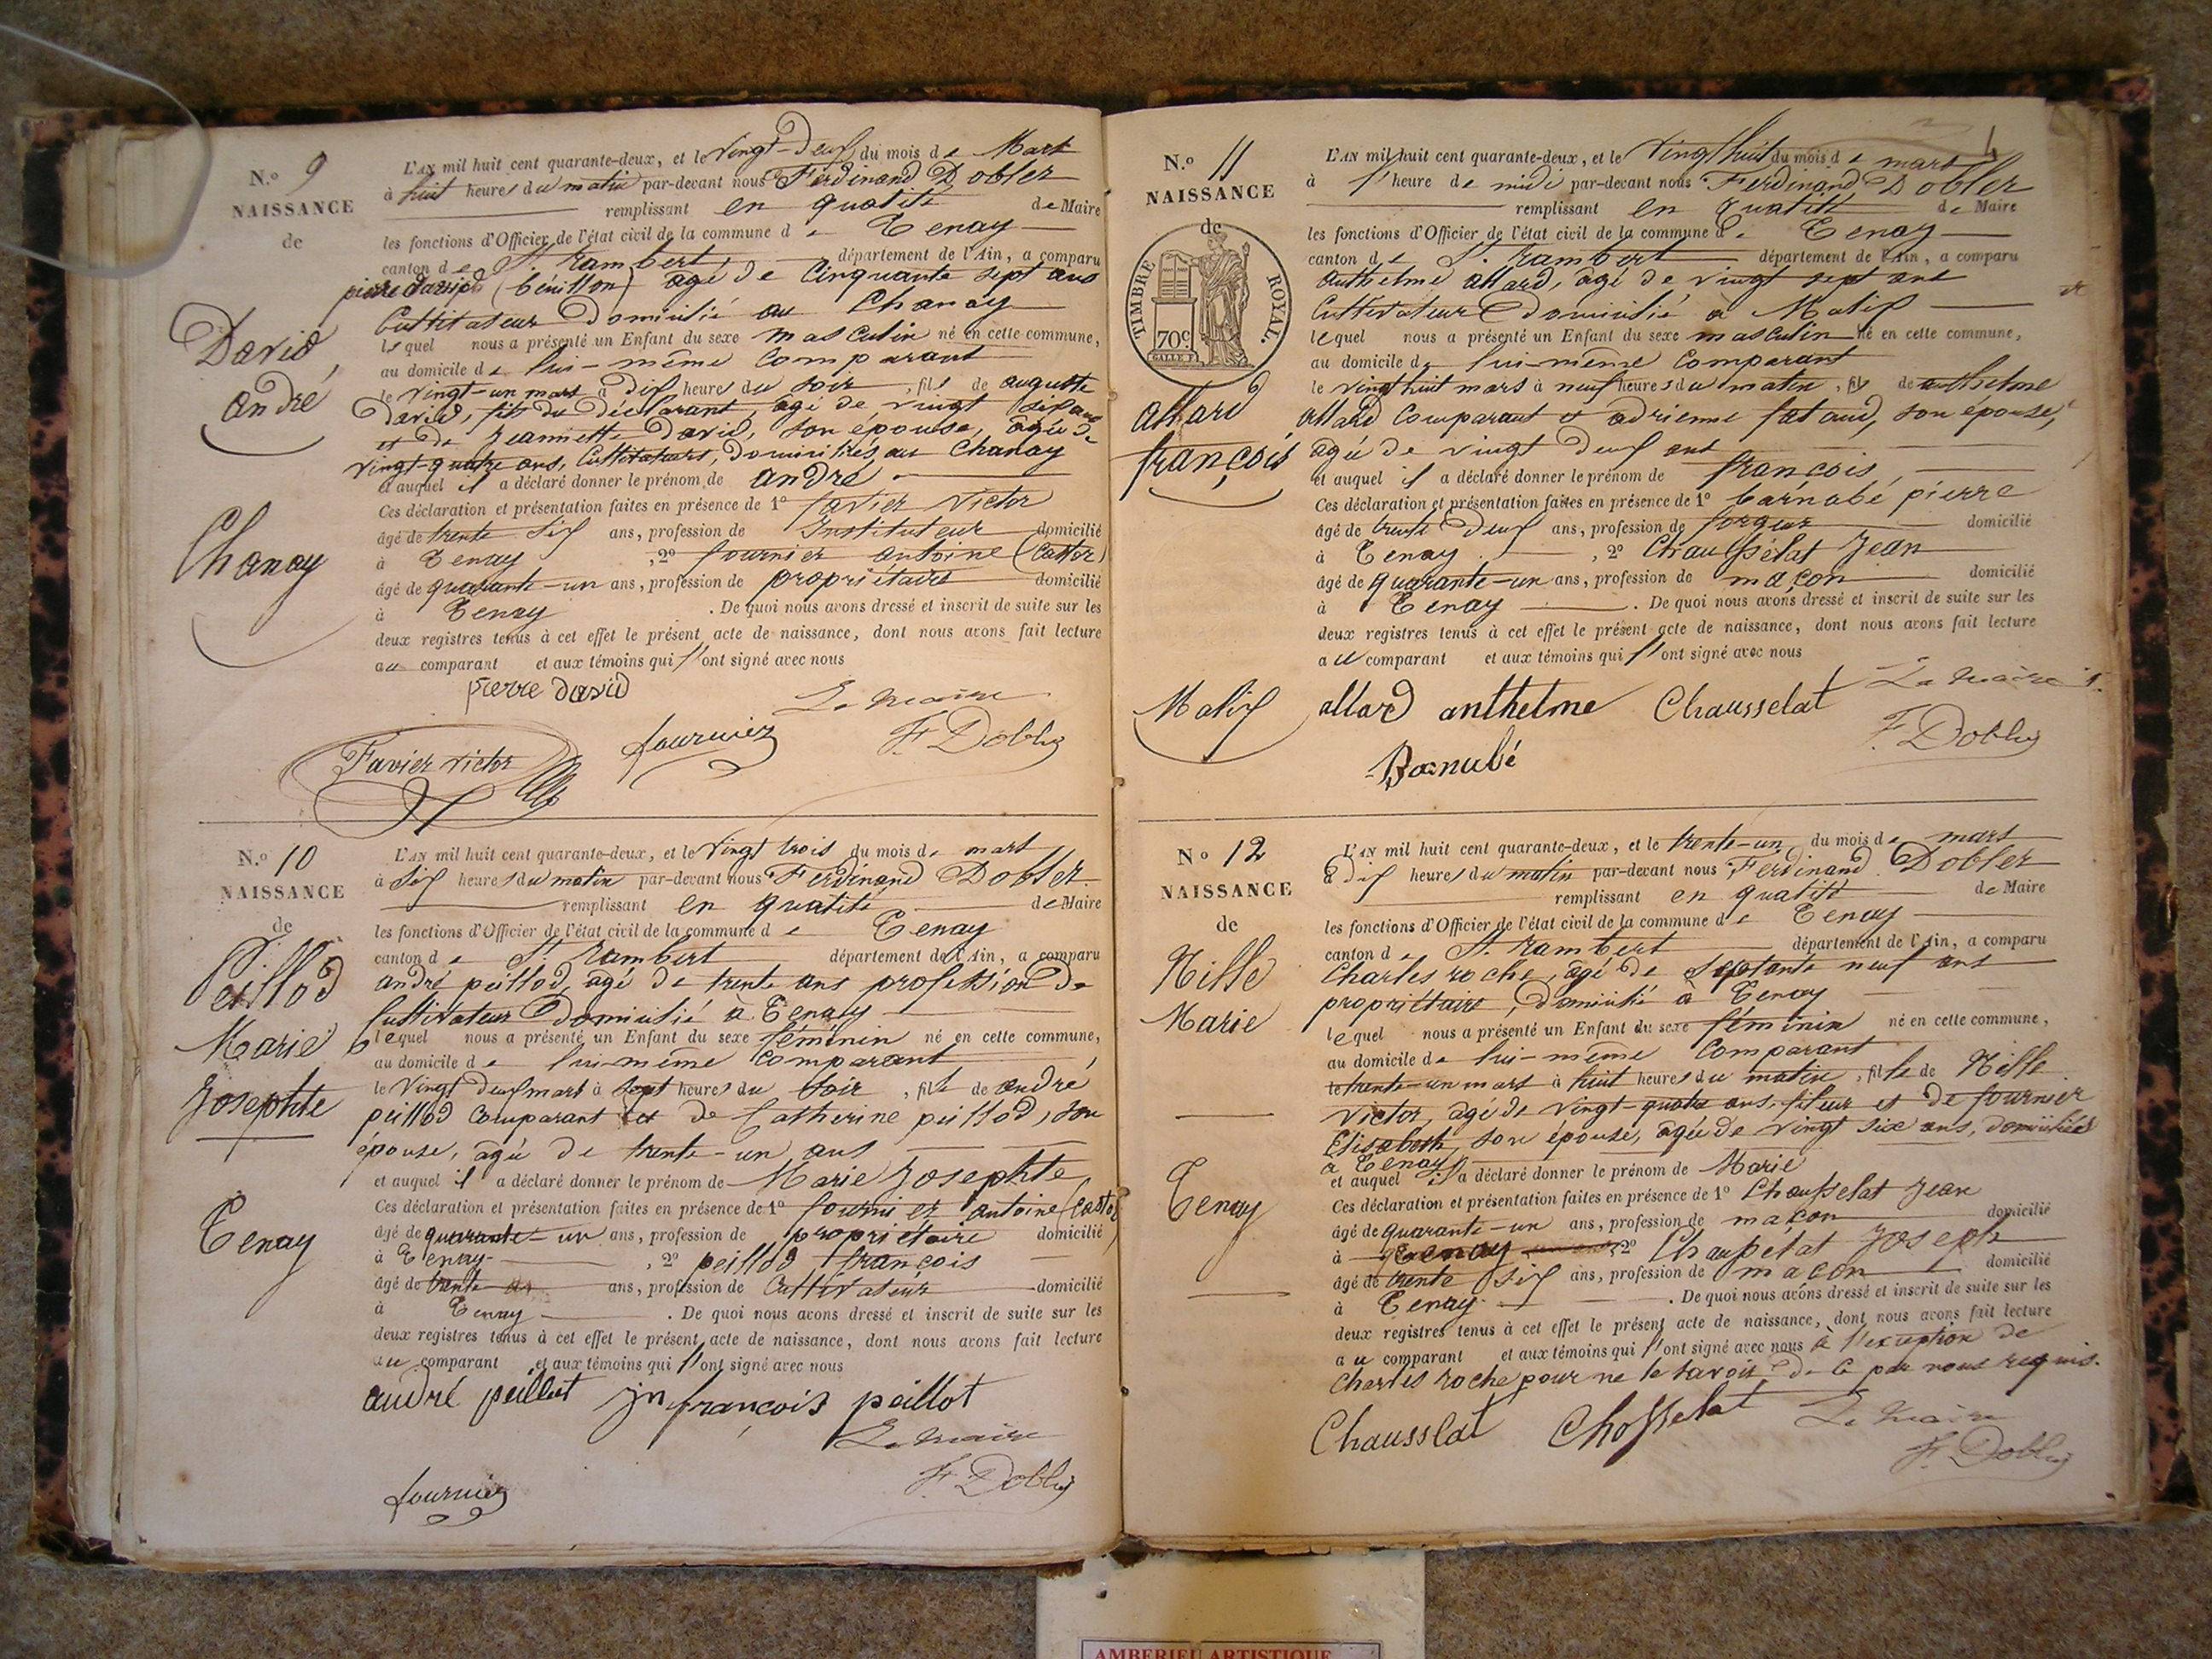 N.o 9
NAISSANCE
de
David,
andré
Chanay
L'AN mil huit cent quarante-deux, et le Vingt-deux du mois de Mars
à huit heures du matin par-devant nous Ferdinand Dobler
remplissant en qualité de Maire
les fonctions d'Officier de l'état civil de la commune de Tenay
canton de St. Rambert, département de l'Ain, a comparu
pierre david (bénitton) agé de Cinquante sept ans
Cultivateur domicilié au Chanay
lequel nous a présenté un Enfant du sexe masculin né en cette commune,
au domicile de lui-même Comparant
le vingt-un mars à dix heures du soir, fils de auguste
David, fils du déclarant, agé de vingt six ans
et de Jeannette David, son épouse, agée de
vingt-quatre ans, Cultivateurs, domiciliés au Chanay
et auquel il a déclaré donner le prénom de andré
Ces déclaration et présentation faites en présence de 1o favier Victor
âgé de trente six ans, profession de Instituteur domicilié
à Tenay, 2o fournier antoine (Castor)
âgé de quarante-un ans, profession de propriétaire domicilié
à Tenay. De quoi nous avons dressé et inscrit de suite sur les
deux registres tenus à cet effet le présent acte de naissance, dont nous avons fait lecture
au comparant et aux témoins qui l'ont signé avec nous
pierre david
Le Maire
Favier victor
fournier
F. Dobler
N.o 10
NAISSANCE
de
Peillod
Marie
Josephte
Tenay
L'AN mil huit cent quarante-deux, et le Vingt trois du mois de mars
à Six heures du matin par-devant nous Ferdinand Dobler
remplissant en qualité de Maire
les fonctions d'Officier de l'état civil de la commune de Tenay
canton de St. Rambert département de l'Ain, a comparu
andré peillod, agé de trente ans profession de
Cultivateur Domicilié à Tenay
lequel nous a présenté un Enfant du sexe féminin né en cette commune,
au domicile de lui-même Comparant,
le Vingt deux mars à sept heures du soir, fille de andré
peillod Comparant et de Catherine peillod, son
épouse, agée de trente-un ans
et auquel il a déclaré donner le prénom de Marie Josephte
Ces déclaration et présentation faites en présence de 1o fournier antoine (Castor)
âgé de quarante-un ans, profession de propriétaire domicilié
à Tenay, 2o peillod françois
âgé de trente ans, profession de Cultivateur domicilié
à Tenay. De quoi nous avons dressé et inscrit de suite sur les
deux registres tenus à cet effet le présent acte de naissance, dont nous avons fait lecture
au comparant et aux témoins qui l'ont signé avec nous
andré peillot jn françois peillot
Le Maire
fournier
F. Dobler
N.o 11
NAISSANCE
de
TIMBRE ROYAL.
70c.
allard
françois
Malix
L'AN mil huit cent quarante-deux, et le Vingt huit du mois de mars
à l'heure de midi par-devant nous Ferdinand Dobler
remplissant en qualité de Maire
les fonctions d'Officier de l'état civil de la commune de Tenay
canton de St. Rambert département de l'Ain, a comparu
anthelme allard, âgé de vingt sept ans
Cultivateur domicilié à Malix
lequel nous a présenté un Enfant du sexe masculin né en cette commune,
au domicile de lui-même Comparant
le vingt huit mars à neuf heures du matin, fils de anthelme
allard Comparant et adrienne fataud, son épouse,
agée de vingt deux ans
et auquel il a déclaré donner le prénom de françois,
Ces déclaration et présentation faites en présence de 1o barnabé pierre
âgé de trente deux ans, profession de forgeur domicilié
à Tenay, 2o Chausselat Jean
âgé de quarante-un ans, profession de maçon domicilié
à Tenay. De quoi nous avons dressé et inscrit de suite sur les
deux registres tenus à cet effet le présent acte de naissance, dont nous avons fait lecture
au comparant et aux témoins qui l'ont signé avec nous
allard anthelme Chausselat Le Maire
F. Dobler
Barnabé
No 12
NAISSANCE
de
Mille
Marie
Tenay
L'AN mil huit cent quarante-deux, et le trente-un du mois de mars
à dix heures du matin par-devant nous Ferdinand Dobler
remplissant en qualité de Maire
les fonctions d'Officier de l'état civil de la commune de Tenay
canton de St. Rambert département de l'Ain, a comparu
Charles roche, âgé de septante neuf ans
propriétaire, domicilié à Tenay
lequel nous a présenté un Enfant du sexe féminin né en cette commune,
au domicile de lui-même Comparant
le trente-un mars à huit heures du matin, fille de Mille
Victor, agé de vingt-quatre ans, fileur et de fournier
Elisabeth, son épouse, agée de vingt six ans, domiciliés
à Tenay
et auquel il a déclaré donner le prénom de Marie
Ces déclaration et présentation faites en présence de 1o Chausselat Jean
âgé de quarante-un ans, profession de maçon domicilié
à Tenay 2o Chausselat Joseph
âgé de trente six ans, profession de maçon domicilié
à Tenay. De quoi nous avons dressé et inscrit de suite sur les
deux registres tenus à cet effet le présent acte de naissance, dont nous avons fait lecture
au comparant et aux témoins qui l'ont signé avec nous à l'exception de
Charles roche pour ne le savoir de ce par nous requis.
Chausslat Chosselat Le Maire
F. Dobler
AMBERIEU ARTISTIQUE